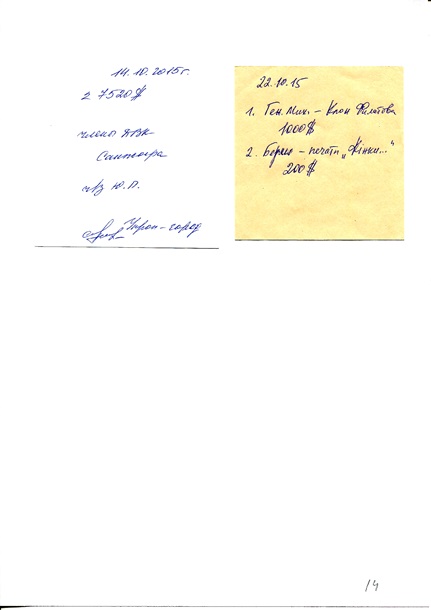 14.10.2015г.
2 7520$
члены ТВК
Сантогра
ч/з Ю.П.
Укроп-город
22.10.15
1. Ген. Мин. - Клон Филатова
1000$
2. Борько - печати „Жінки..."
200$
14